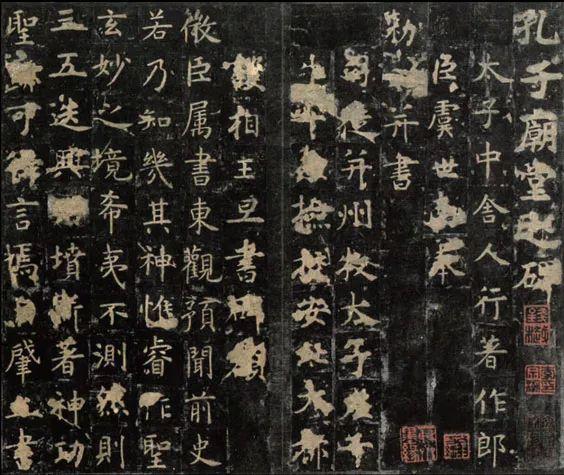 孔子廟堂之碑
太子中舍人行著作郎
臣虞世南奉
勅并書
司徒并州牧太子左千
牛率兼檢校安北大都
護相王旦書碑額
微臣属書東觀預聞前史
若乃知幾其神惟睿作聖
玄妙之境希夷不測然則
三五迭興墳斯著神功
聖跡可得言焉自肇立書